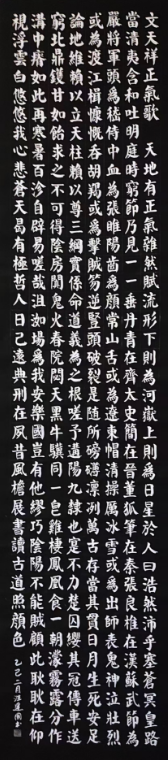 文天祥正氣歌 天地有正氣雜然賦流形下則為河嶽上則為日星於人曰浩然沛乎塞蒼冥皇路
當清夷含和吐明庭時窮節乃見一一垂丹青在齊太史簡在晉董狐筆在秦張良椎在漢蘇武節為
嚴將軍頭為嵇侍中血為張睢陽齒為顏常山舌或為遼東帽清操厲冰雪或為出師表鬼神泣壯烈
或為渡江楫慷慨吞胡羯或為擊賊笏逆豎頭破裂是所磅礴凛冽萬古存當其貫日月生死安足
論地維賴以立天柱賴以尊三綱實係命道義為之根嗟予遘陽九隸也實不力楚囚纓其冠傳車送
窮北鼎鑊甘如飴求之不可得陰房闃鬼火春院閟天黑牛驥同一皂雞棲鳳凰食一朝濛霧露分作
溝中瘠如此再寒暑百沴自辟易嗟哉沮洳場為我安樂國豈有他繆巧陰陽不能賊顧此耿耿在仰
視浮雲白悠悠我心悲蒼天曷有極哲人日已遠典刑在夙昔風檐展書讀古道照顏色 乙巳二月